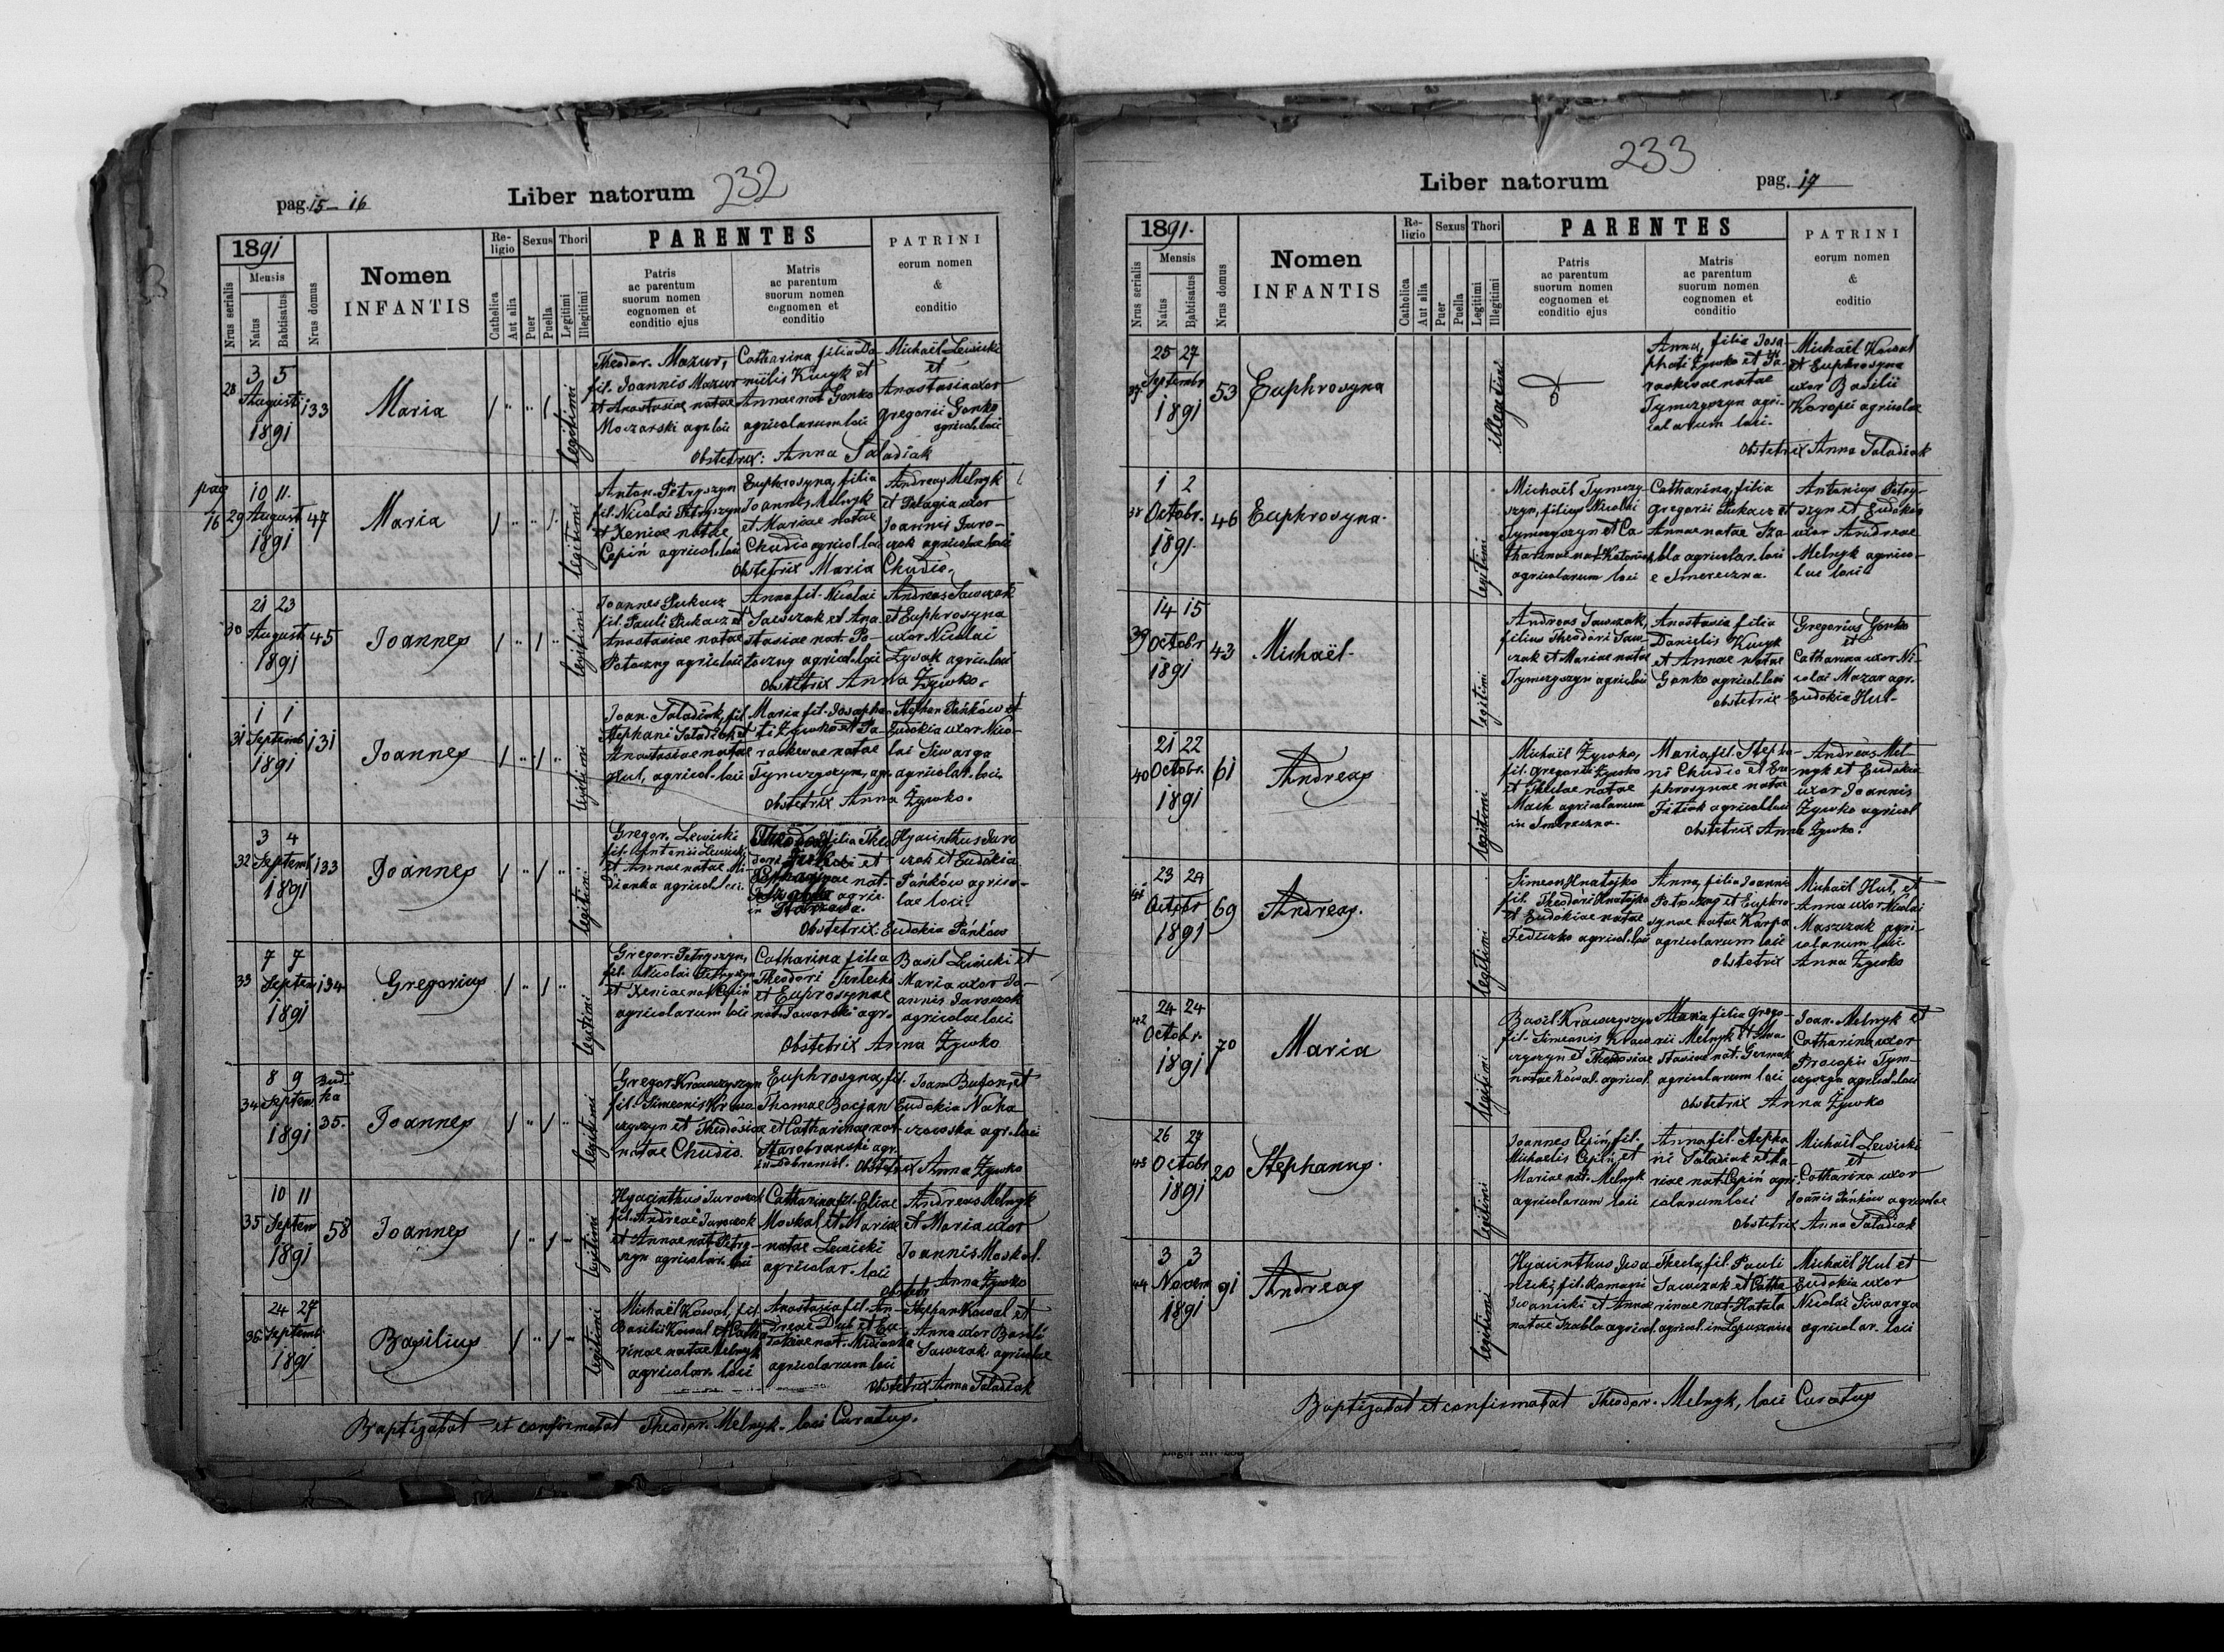 232
pag. 15–16 Liber natorum
1891
Nrus serialis
Mensis
Natus
Babtisatus
Nrus domus
Nomen
INFANTIS
Re-
ligio
Catholica
Aut alia
Sexus
Puer
Puella
Thori
Legitimi
Illegitimi
PARENTES
Patris
ac parentum
suorum nomen
cognomen et
conditio ejus
Matris
ac parentum
suorum nomen
cognomen et
conditio
PATRINI
eorum nomen
&
conditio
28
3 5
August
1891
133
Maria
legitimi
Theodor. Mazur,
fil. Joannis Mazur
et Anastasiae natae
Moczarski agr. loci
Catharina filia Da-
niilis Kucyk et
Annae nat. Gonko
agricolarum loci
Michaël Lewicki
et
Anastasia uxor
Gregorii Gonko
agricol. loci
Obstetrix: Anna Saladiak
pag
16
29
10 11.
August
1891
47
Maria
legitimi
Anton. Petryszyn
fil. Nicolai Petryszyn
et Xeniae natae
Cepiń agricol. loci
Euphrosyna, filia
Joannis Melnyk
et Mariae natae
Chudio agricol. loci
Andreas Melnyk
et Pelagia uxor
Joannis Juro-
czak agricolae loci
Obstetrix Maria Chudio.
30
21 23
August
1891
45
Joannes
legitimi
Joannes Pukacz
fil. Pauli Pukacz et
Anastasiae natae
Potoczny agric. loci
Anna fil. Nicolai
Sawczak et Ana-
stasiae nat. Po-
toczny agricol. loci
Andreas Sawczak
et Euphrosyna
uxor Nicolai
Łysak agric. loci
Obstetrix Anna Żywko.
31
1 1
Septemb
1891
131
Joannes
legitimi
Joan. Saladiak, fil.
Stephani Saladiak et
Anastasiae natae
Hut, agricol. loci
Maria fil. Josapha-
ti Żywko et Pa-
raskevae natae
Tymczyszyn, agr.
Stephan Pańków et
Eudokia uxor Nico-
lai Siwarga
agricolar. loci.
Obstetrix Anna Żywko.
32
3 4
Septemb
1891
133
Joannes
legitimi
Gregor. Lewicki
fil. Antonii Lewicki
et Annae natae Mi-
dianka agricol. loci.
filia Theo
dori et
nat.
agric.
in Starzawa.
Hyacinthus Juro
czak et Eudokia
Pańków agrico-
lae loci.
Obstetrix: Eudokia Pańków
33
7 7
Septem
1891
134
Gregorius
legitimi
Gregor. Petryszyn,
fil. Nicolai Petryszyn
et Xeniae nat. Cepiń
agricolarum loci
Catharina filia
Theodori Terlecki
et Euprosynae
nat. Jaworski agr.
Basil Lewicki et
Maria uxor Jo-
annis Juroczak
agricolae loci.
Obstetrix Anna Żywko
34
8 9
Septem.
1891
35.
Joannes
legitimi
Gregor Krawczyszyn
fil. Simeonis Kraw
czyszyn et Theodosiae
natae Chudio.
Euphrosyna, fil.
Thomae Bocjan
et Catharinae nat.
Starobranski agr.
in Dobromil.
Joan Buton et
Eudokia Naha
czowska agr. loci
Obstetrix Anna Żywko
35
10 11
Septem
1891
58
Joannes
legitimi
Hyacinthus Juroczak
fil. Andreae Juroczak
et Annae nat. Petry-
szyn agricolar. loci
Catharina fil. Eliae
Moskal et Mariae
natae Lewicki
agricolar. loci
Andreas Melnyk
et Maria uxor
Joannis Moskal.
Obstetr. Anna Żywko
36.
24 27
Septemb.
1891
Basilius
legitimi
Michaël Kowal, fil.
Basilii Kowal et Catha
rinae natae Melnyk
agricolar. loci
Anastasia fil. An-
dreae Dub et Eu-
dokiae nat. Midianka
agricolarum loci
Stephan Kowal et
Anna uxor Basili
Sawczak agricolae
Obstetrix Anna Saladiak
Baptizabat et confirmabat Theodor. Melnyk. loci Curatus.
233
Liber natorum pag. 17
1891.
Nrus serialis
Mensis
Natus
Babtisatus
Nrus domus
Nomen
INFANTIS
Re-
ligio
Catholica
Aut alia
Sexus
Puer
Puella
Thori
Legitimi
Illegitimi
PARENTES
Patris
ac parentum
suorum nomen
cognomen et
conditio ejus
Matris
ac parentum
suorum nomen
cognomen et
conditio
PATRINI
eorum nomen
&
coditio
37
25 27
Septembr
1891
53
Euphrosyna
illegitimi
Anna, filia Josa-
phati Żywko et Pa-
raskevae natae
Tymczyszyn agri-
colarum loci.
Michaël Kowal
et Euphrosyna
uxor Basilii
Koropei agricolae
Obstetrix Anna Saladiak
38
1 2
Octobr.
1891.
46
Euphrosyna.
legitimi
Michaël Tymczy-
szyn, filius Nicolai
Tymczyszyn et Ca-
tharinae nat.
agricolarum loci
Catharina, filia
Gregorii Pukacz et
Annae natae Sza-
bla agricolar. loci
e Smereczna.
Antonius Petry-
szyn et Eudokia
uxor Andreae
Melnyk agrico-
lae loci
39
14 15
Octobr
1891
43
Michaël.
legitimi
Andreas Sawczak,
filius Theodori Saw
czak et Mariae natae
Tymczyszyn agric. loci
Anastasia filia
Danielis Kucyk
et Annae natae
Gonko agricol. loci
Gregorius Gonko
et
Catharina uxor Ni-
colai Mazur agr.
Obstetrix Eudokia Hut.
40
21 22
Octobr.
1891
61
Andreas
legitimi
Michaël Żywko,
fil. Gregorii Żywko
et Theclae natae
Mach agricolarum
in Smereczna.
Maria fil. Stepha-
ni Chudio et Eu-
phrosynae natae
Fitiok agricol. loci
Andreas Mel-
nyk et Eudokia
uxor Joannis
Żywko agricol
Obstetrix Anna Żywko.
41
23 24
Octobr
1891
69
Andreas.
legitimi
Simeon Hnatejko
fil. Theodori Hnatejko
et Eudokiae natae
Fediczko agricol. loci
Anna, filia Joannis
Potoczny et Euphro-
synae natae Karpa
agricolarum loci
Michaël Hut, et
Anna uxor Nicolai
Maszczak agri-
colarum loci.
Obstetrix Anna Żywko
42
24 24
Octobr.
1891
70
Maria
legitimi
Basil. Krawczyszyn
fil. Simeonis Kraw
czyszyn et Theodosiae
natae Kowal. agricol.
Anna filia Grego-
rii Melnyk et Ana-
stasiae nat. Germak
agricolarum loci
Joan. Melnyk et
Catharina uxor
Procopii Tym-
czyszyn agricol. loci
Obstetrix Anna Żywko
43
26 27
Octobr
1891
20
Stephanus.
legitimi
Joannes Cepiń, fil.
Michaelis Cepiń, et
Mariae nat. Melnyk
agricolarum loci
Anna fil. Stepha
ni Saladiak et Ma-
riae nat. Cepiń agri-
colarum loci
Michaël Lewicki
et
Catharina uxor
Joannis Pańków agricolae
Obstetrix Anna Saladiak
44
3 3
Novem
1891
91
Andreas
legitimi
Hyacinthus Iwa
nicki, fil. Romani
Iwanicki et Annae
natae Szabla agricol.
Thecla, fil. Pauli
Sawczak et Catha
rinae nat. Hatala
agricol. in Łopusznica
Michaël Hut et
Eudokia uxor
Nicolai Siwarga
agricolar. loci
Baptizabat et confirmabat Theodor. Melnyk, loci Curatus